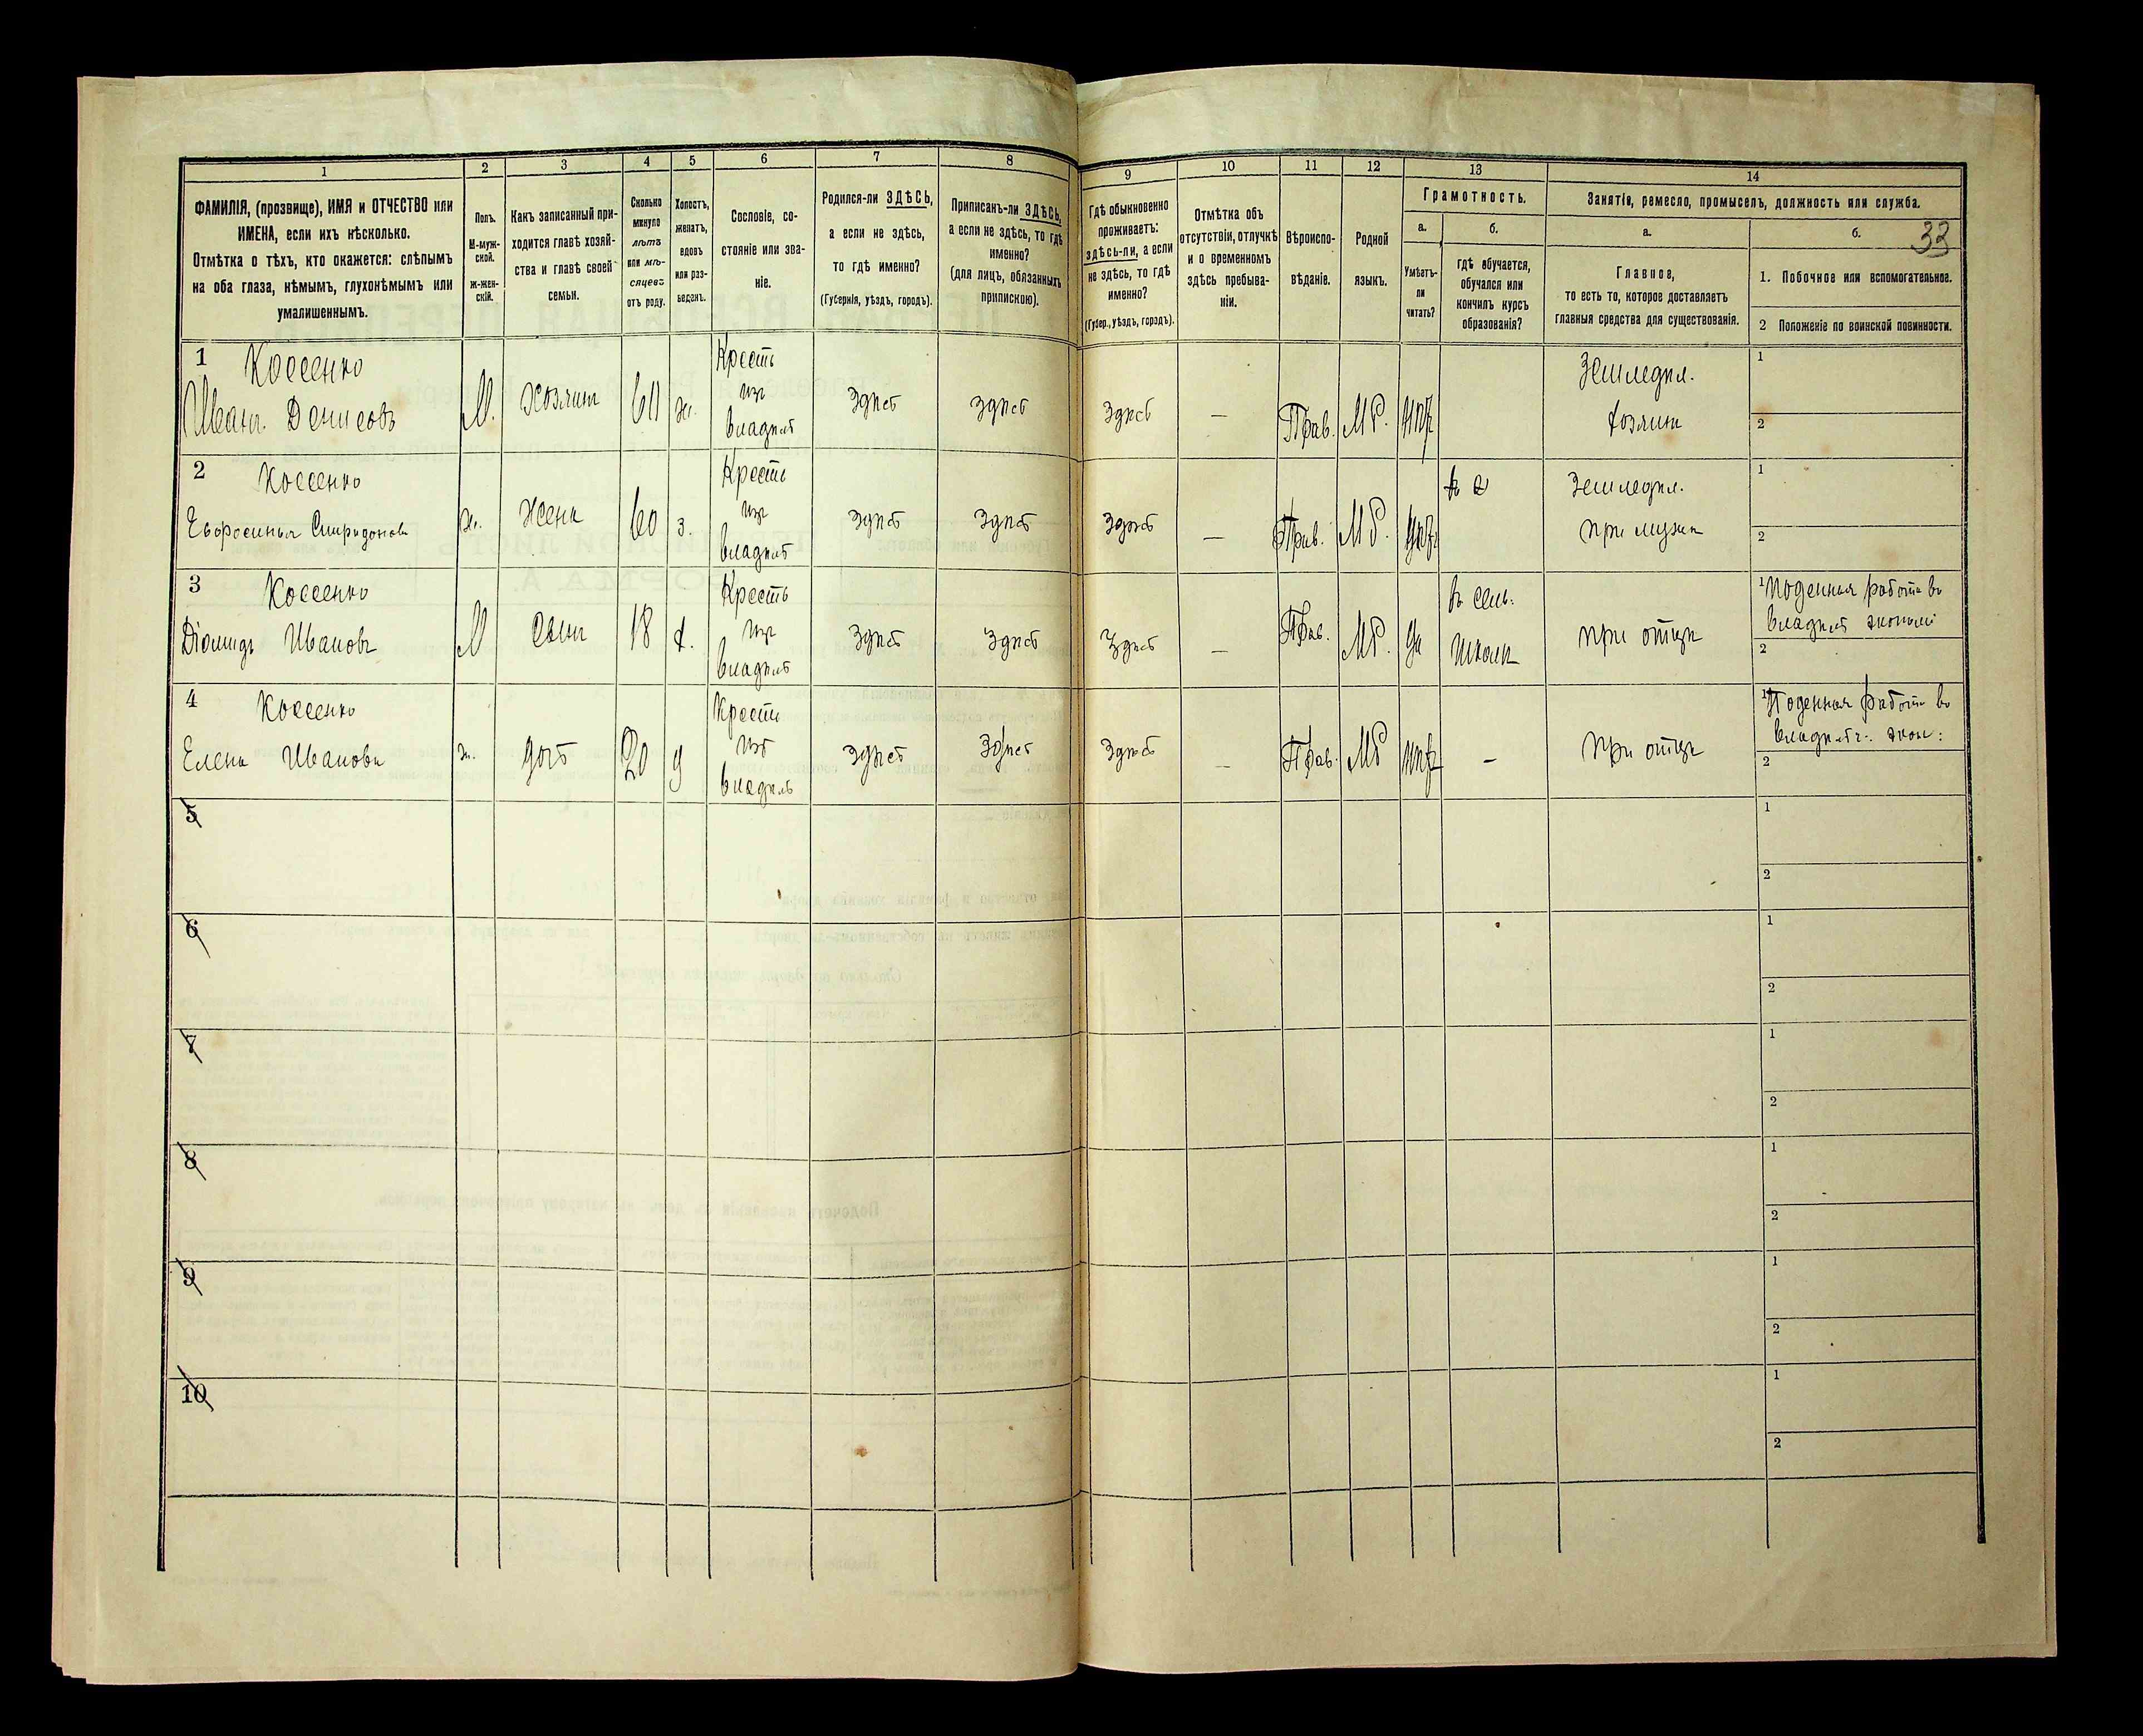 1 2 3 4 5 6 7 8 9 10 11 12 13 14
ФАМИЛІЯ, (прозвище), ИМЯ и ОТЧЕСТВО или
ИМЕНА, если ихъ нѣсколько.
Отмѣтка о тѣхъ, кто окажется: слѣпымъ
на оба глаза, нѣмымъ, глухонѣмымъ или
умалишеннымъ.
Полъ.
М-муж-
ской.
ж-жен-
скій.
Какъ записанный при-
ходится главѣ хозяй-
ства и главѣ своей
семьи.
Сколько
минуло
лѣтъ
или мѣ-
сяцевъ
отъ роду.
Холостъ,
женатъ,
вдовъ
или раз-
веденъ.
Сословіе, со-
стояніе или зва-
ніе.
Родился-ли ЗДѢСЬ,
а если не здѣсь,
то гдѣ именно?
(Губернія, уѣздъ, городъ).
Приписанъ-ли ЗДѢСЬ,
а если не здѣсь, то гдѣ
именно?
(для лицъ, обязанныхъ
припискою).
Гдѣ обыкновенно
проживаетъ:
здѣсь-ли, а если
не здѣсь, то гдѣ
именно?
(Губер., уѣздъ, городъ).
Отмѣтка объ
отсутствіи, отлучкѣ
и о временномъ
здѣсь пребыва-
ніи.
Вѣроиспо-
вѣданіе.
Родной
языкъ.
Грамотность.
а.
Умѣетъ-
ли
читать?
б.
гдѣ обучается,
обучался или
кончилъ курсъ
образованія?
Занятія, ремесло, промыселъ, должность или служба.
а.
Главное,
то есть то, которое доставляетъ
главныя средства для существованія.
б.
33
1. Побочное или вспомогательное.
2 Положеніе по воинской повинности.
1 Коссенко
Иванъ Денисовъ
М. Хозяин ж.
Кресть
изъ
владѣл
здѣсь здѣсь здѣсь — Прав. МР. нѣт
Земледѣл.
хозяин
1
2
2 Коссенко
Евфросинья Спиридонова
ж. Жена 60 з.
Кресть
изъ
владѣл
здѣсь здѣсь здѣсь — Прав. МР. нѣт
Земледѣл.
при мужѣ
1
2
3 Коссенко
Діомидъ Иванов
М сын 18 х.
Кресть
изъ
владѣл
здѣсь здѣсь здѣсь — Прав. МР. да
в сель.
школѣ
при отцѣ
1 Поденная работа во
владѣл экономі
2
4 Коссенко
Елена Иванова
ж. дочь 20 д
Кресть
изъ
владѣль
здѣсь здѣсь здѣсь — Прав. МР нѣт —
при отцѣ
1 Поденная работа во
владѣл. экон:
2
5
1
2
6
1
2
7
1
2
8
1
2
9
1
2
10
1
2